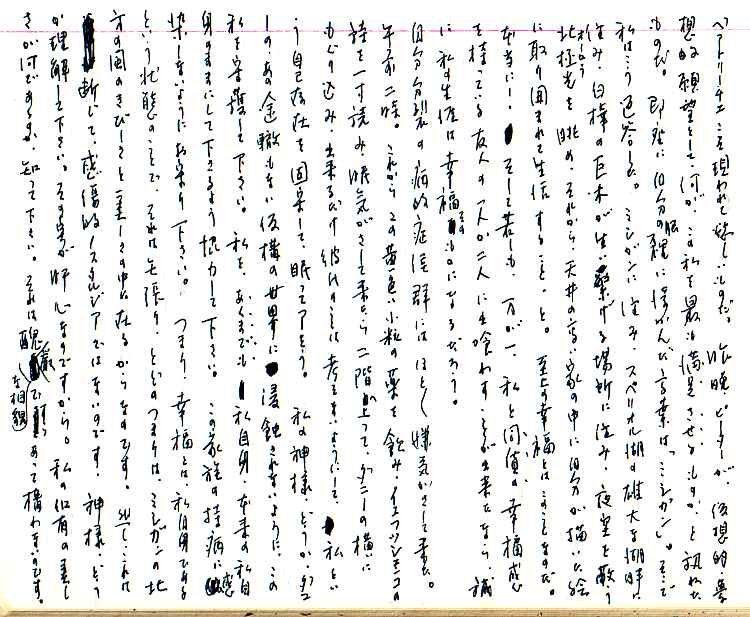 ベアトーチェこそ現われて欲しいものだ。昨晩、ピーターが、仮想的・夢
想的願望として、何が、この私を最も満足させるものか、と訊ねた
ものだ。即座に自分の脳裡に浮かんだ言葉は、「ミシガン」。そこで
私はこう返答した。ミシガンに住み、スペリオル湖の雄大な湖畔に
住み、白樺の巨木が生い繁げる場所に住み、夜空を敵う
北極光を眺め、それから、天井の高い家の中に自分が描いた絵
に取り囲まれて生活すること、と。至上の幸福とはこのことなのだ。
本当に！そして若しも、万が一、私と同値の幸福感
を持っている友人の一人か二人に出喰わすことが出来たなら、誠
に私の生活は幸福そのものになるだろう。
自分分裂の病的症候群にはほとほと嫌気がさして来た。
午前二時。これからこの黄色い小粒の薬を飲み、イエフツシェンコの
詩を一寸読み、眠気がさして来たら二階へ上って、ダニーの横に
もぐり込み、出来るだけ彼のことは考えないようにして、私とい
う自己存在を固守して眠ってしまおう。私の神様、どうか、ダニ
ーの、あの途轍もない仮構の世界に浸蝕されないように、この
私を守護して下さい。私を、あくまでも私自身、本来の私自
身のままにして下さるよう協力して下さい。この家族の持病に感
染しないようにお守り下さい。つまり、幸福とは、私自身である
という状態のことで、それは矢張り、とどのつまりは、ミシガンの北
方の風のきびしさと一重しさの中に在るからなのです。しかし、これは
断じて、感傷的ノスタルジアではないのです。神様、どう
か理解して下さい。その事が肝心なのですから。私の固有の美し
さが何であるか、知って下さい。それは醜であって構わないのです。
な相貌